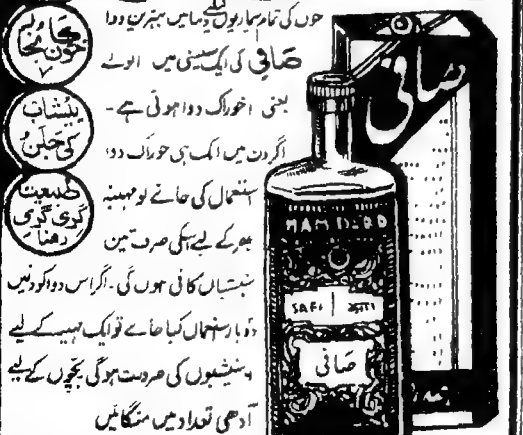 خون کی تمام بیماریوں کیلئے دنیا میں بہترین دوا
صافی کی ایک شیشی میں
یعنی اخوراک دوا ہوتی ہے۔
اگر دن میں ایک ہی خوراک دوا
استعمال کی جائے تو مہینہ
بھر کے لیے اسکی صرف تین
شیشیاں کافی ہوں گی۔ اگر اس دوا کو دن میں
دو بار استعمال کیا جائے تو ایک مہینے کے لیے
شیشیوں کی ضرورت ہوگی بچوں کے لیے
آدھی تعداد میں منگائیں
پیشاب
کی جلن
طبیعت
گری گری
رهنا
صافی
HAMDARD
SAFI
صافی